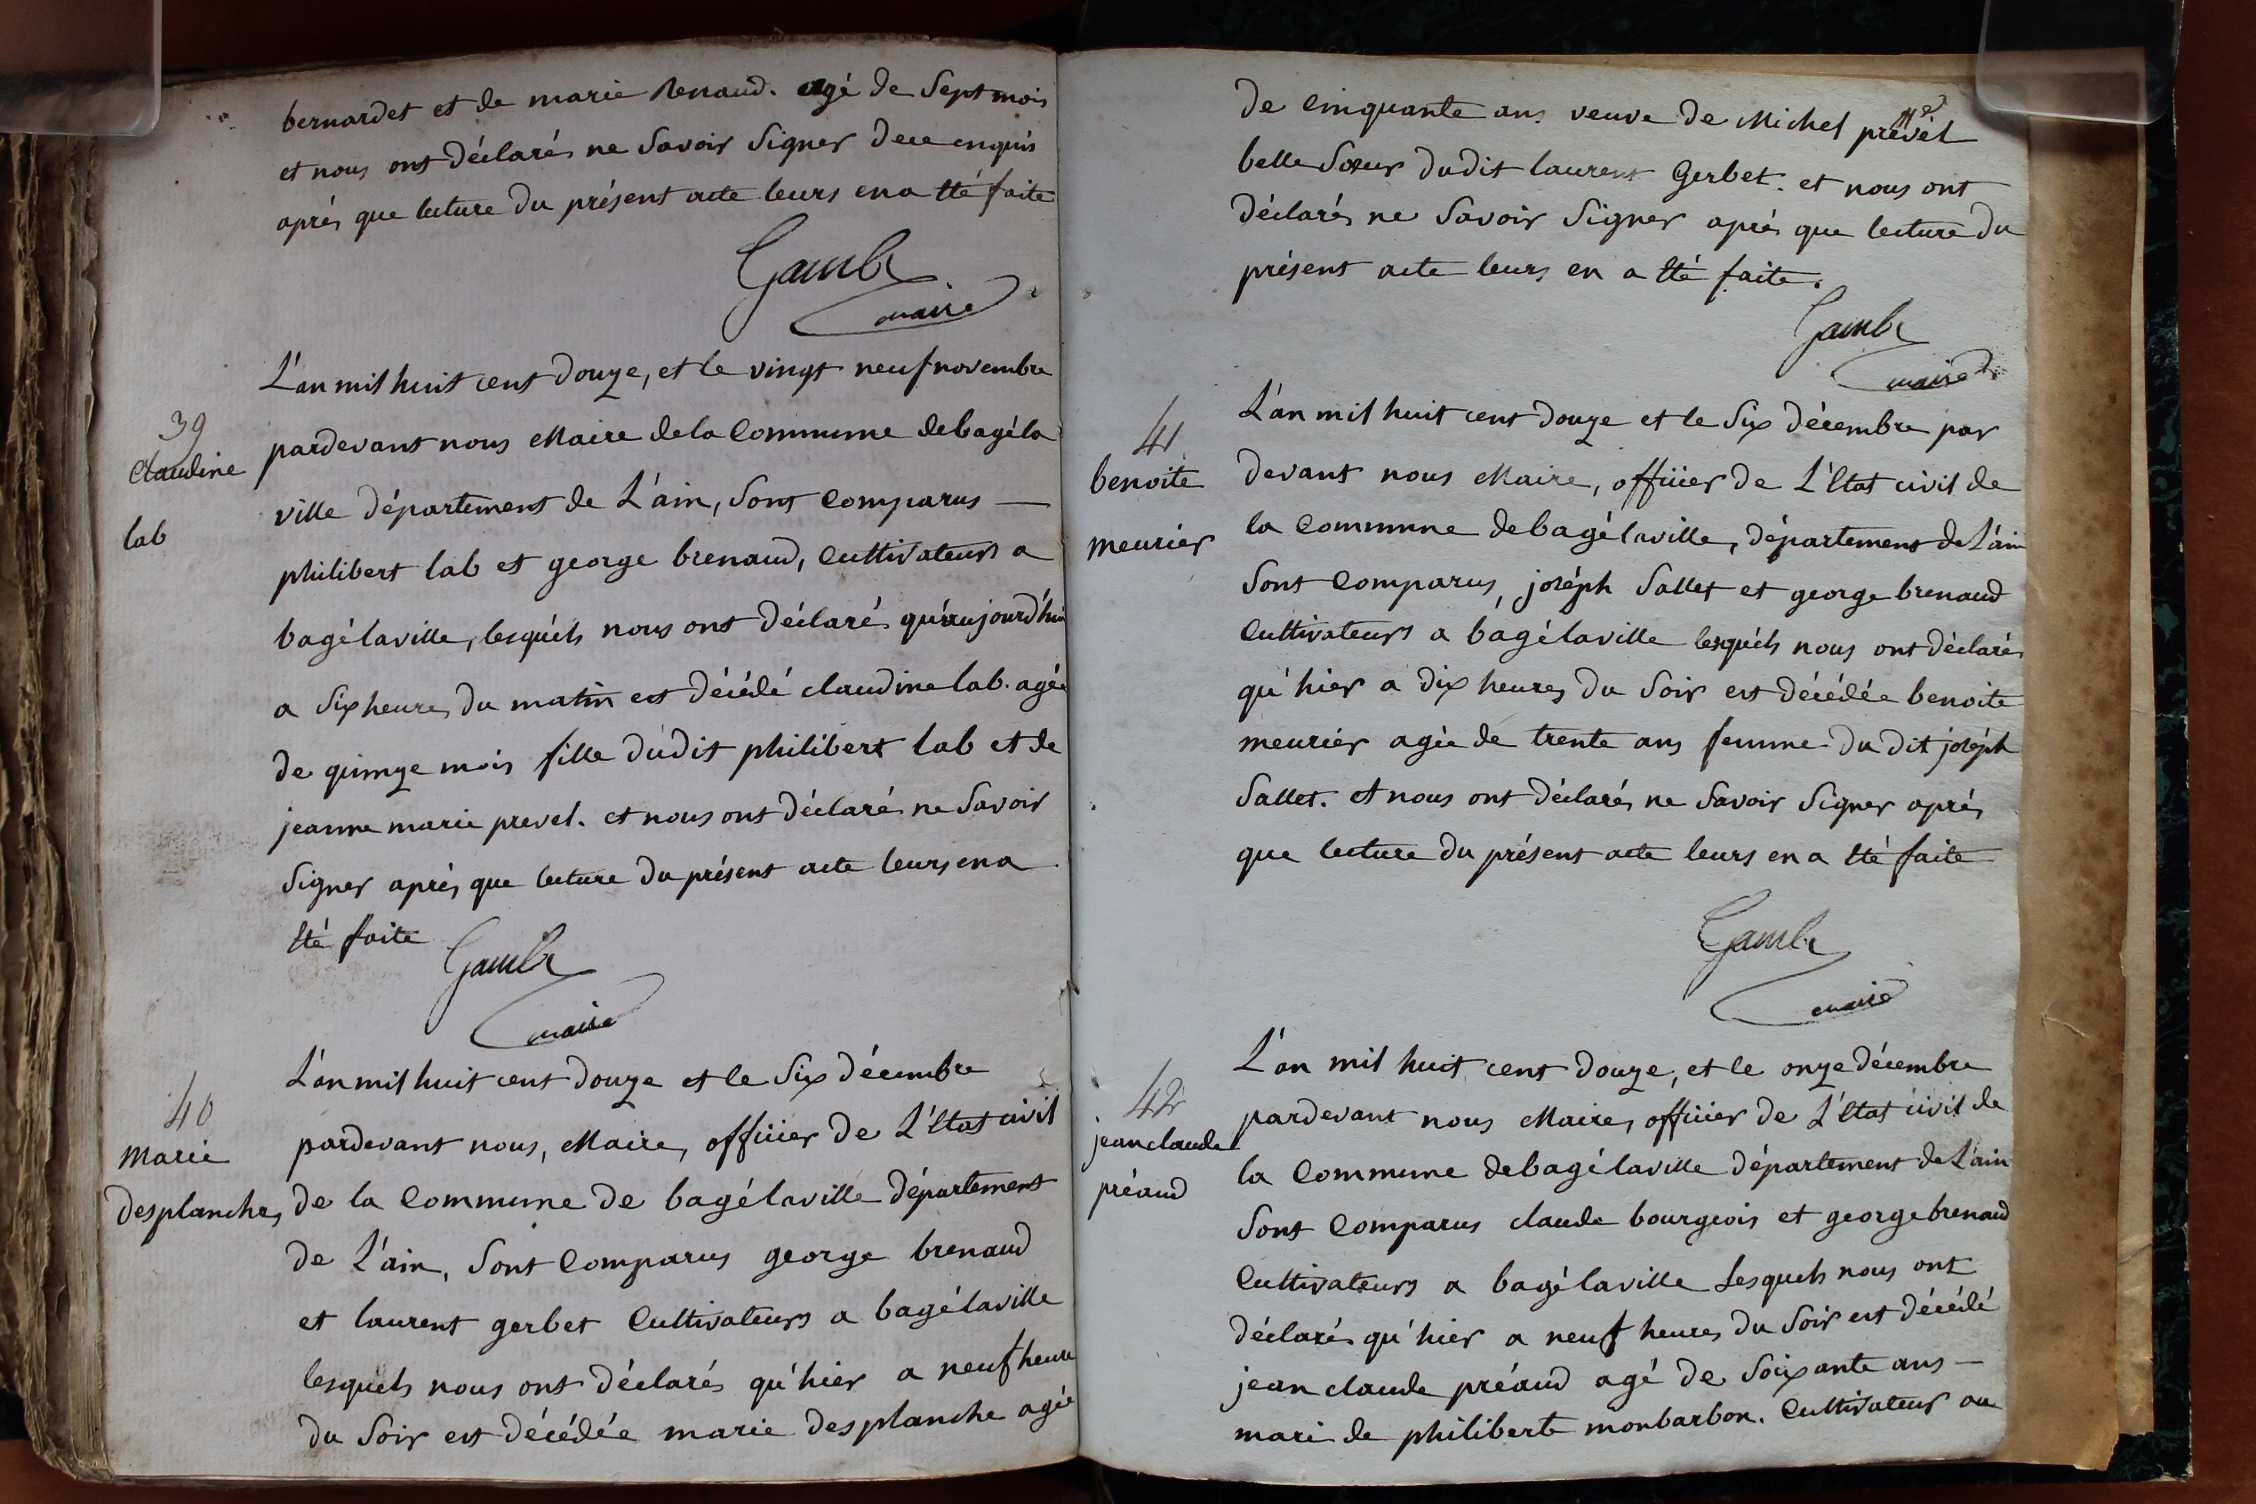 bernardet et de marie Renaud. agé de Sept mois
et nous ont déclarés ne Savoir Signer de ce enquis
aprés que lecture du présent acte leurs en a été faite
Gamb
maire
L'an mil huit cent douze, et le vingt neuf novembre
39
pardevant nous Maire de la Commune de bagé la
Claudine
ville département de L'ain, Sont Comparus —
lab
philibert lab et george brenaud, Cultivateurs a
bagé laville, lesquéls nous ont déclarés qu'aujourd'hui
a Six heures du matin est décédé claudine lab. agée
de quinze mois fille dudit philibert lab et de
jeanne marie prevel. et nous ont déclarés ne Savoir
Signer aprés que lecture du présent acte leurs en a
été faite
Gamb
maire
L'an mil huit cent douze et le Six décembre
40
pardevant nous, Maire, officier de L'état civil
Marie
desplanches
de la Commune de bagé laville département
de L'ain, Sont Comparus george brenaud
et laurent gerbet Cultivateurs a bagé laville
lesquels nous ont déclarés qu'hier a neuf heure
du Soir est décédée marie desplanche agée
de Cinquante ans veuve de Michel prevél
belle Sœur dudit laurent Gerbet. et nous ont
déclarés ne Savoir Signer aprés que lecture du
présent acte leurs en a été faite.
Gamb
maire
L'an mil huit cent douze et le Six décembre par
41
benoite
devant nous Maire, officier de L'état civil de
meurier
la Commune de bagé laville, département de L'ain
Sont Comparus, joséph Sallet et george brenaud
Cultivateurs a bagé laville lesquéls nous ont déclarés
qu'hier a dix heures du Soir est décédée benoite
meurier agée de trente ans femme du dit joséph
Sallet. et nous ont déclarés ne Savoir Signer aprés
que lecture du présent acte leurs en a été faite
Gamb
maire
L'an mil huit cent douze, et le onze décembre
42
pardevant nous Maire, officier de L'état civil de
jean claude
la Commune de bagé laville département de L'ain
préaud
Sont Comparus claude bourgeois et george brenaud
Cultivateurs a bagé laville Lesquels nous ont
déclarés qu'hier a neuf heures du Soir est décédé
jean claude préaud agé de Soixante ans —
mari de philiberte monbarbon. Cultivateur au